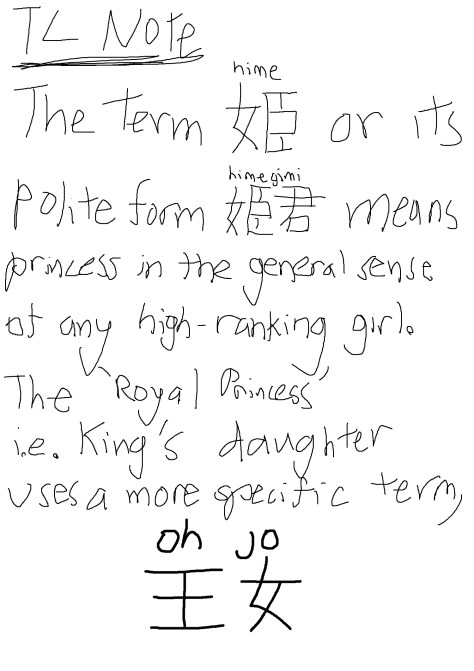 TL Note
hime
The term 姫 or its
himegimi
polite form 姫君 means
princess in the general sense
of any high-ranking girl.
The 'Royal Princess'
i.e. King's daughter
uses a more specific term,
oh jo
王女